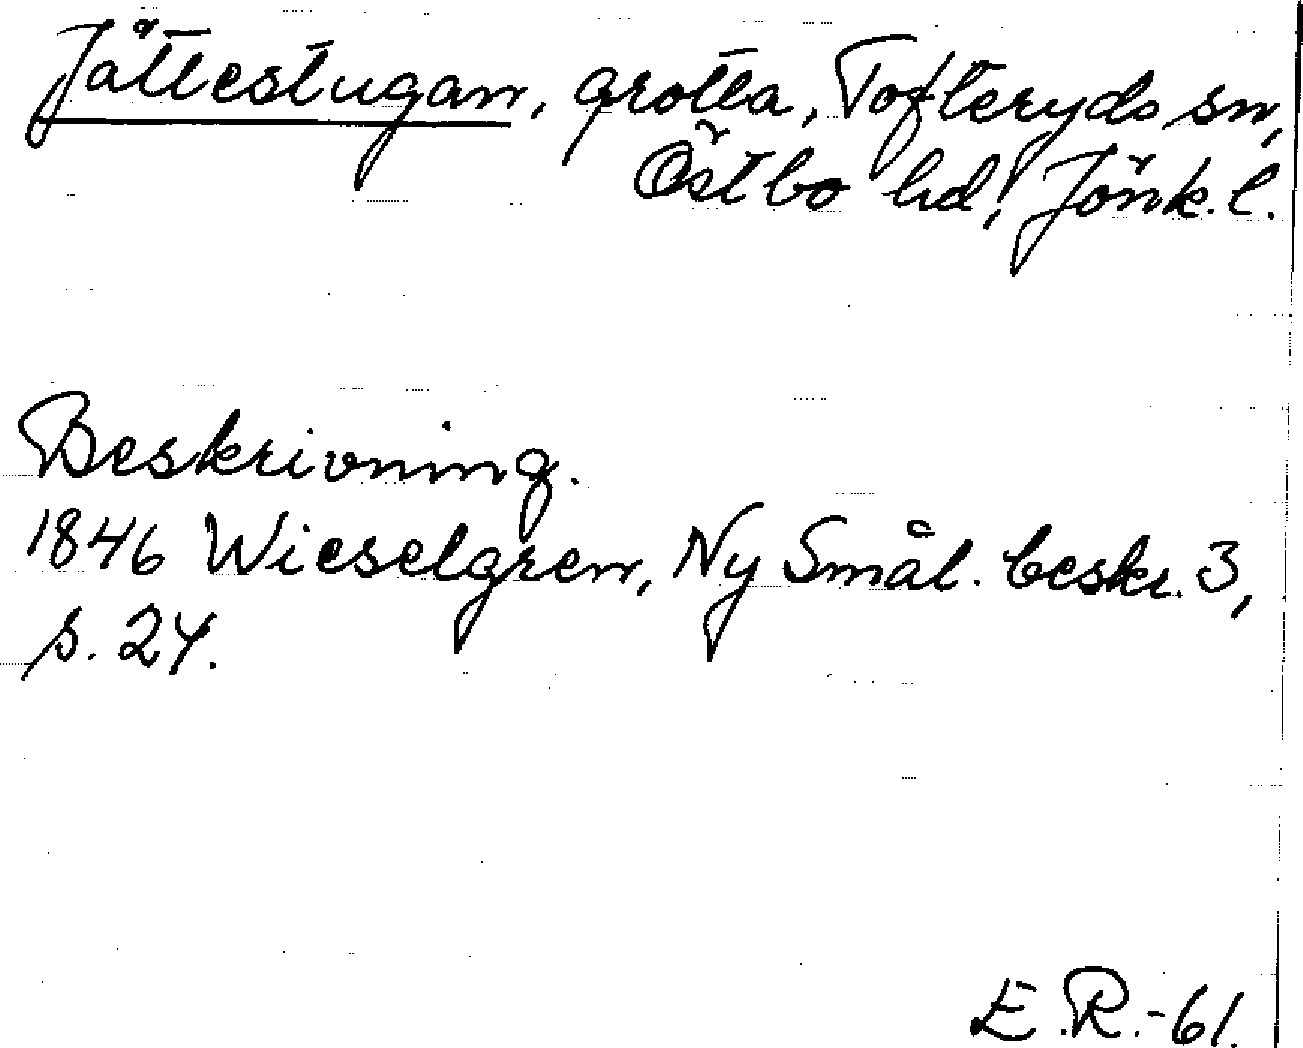 Jättestugan, grotta, Tofteryds sn,
Östbo hd, Jönk. l.
Beskrivning.
1846 Wieselgren, Ny Smål. beskr. 3,
s. 24.
E.R.-61.